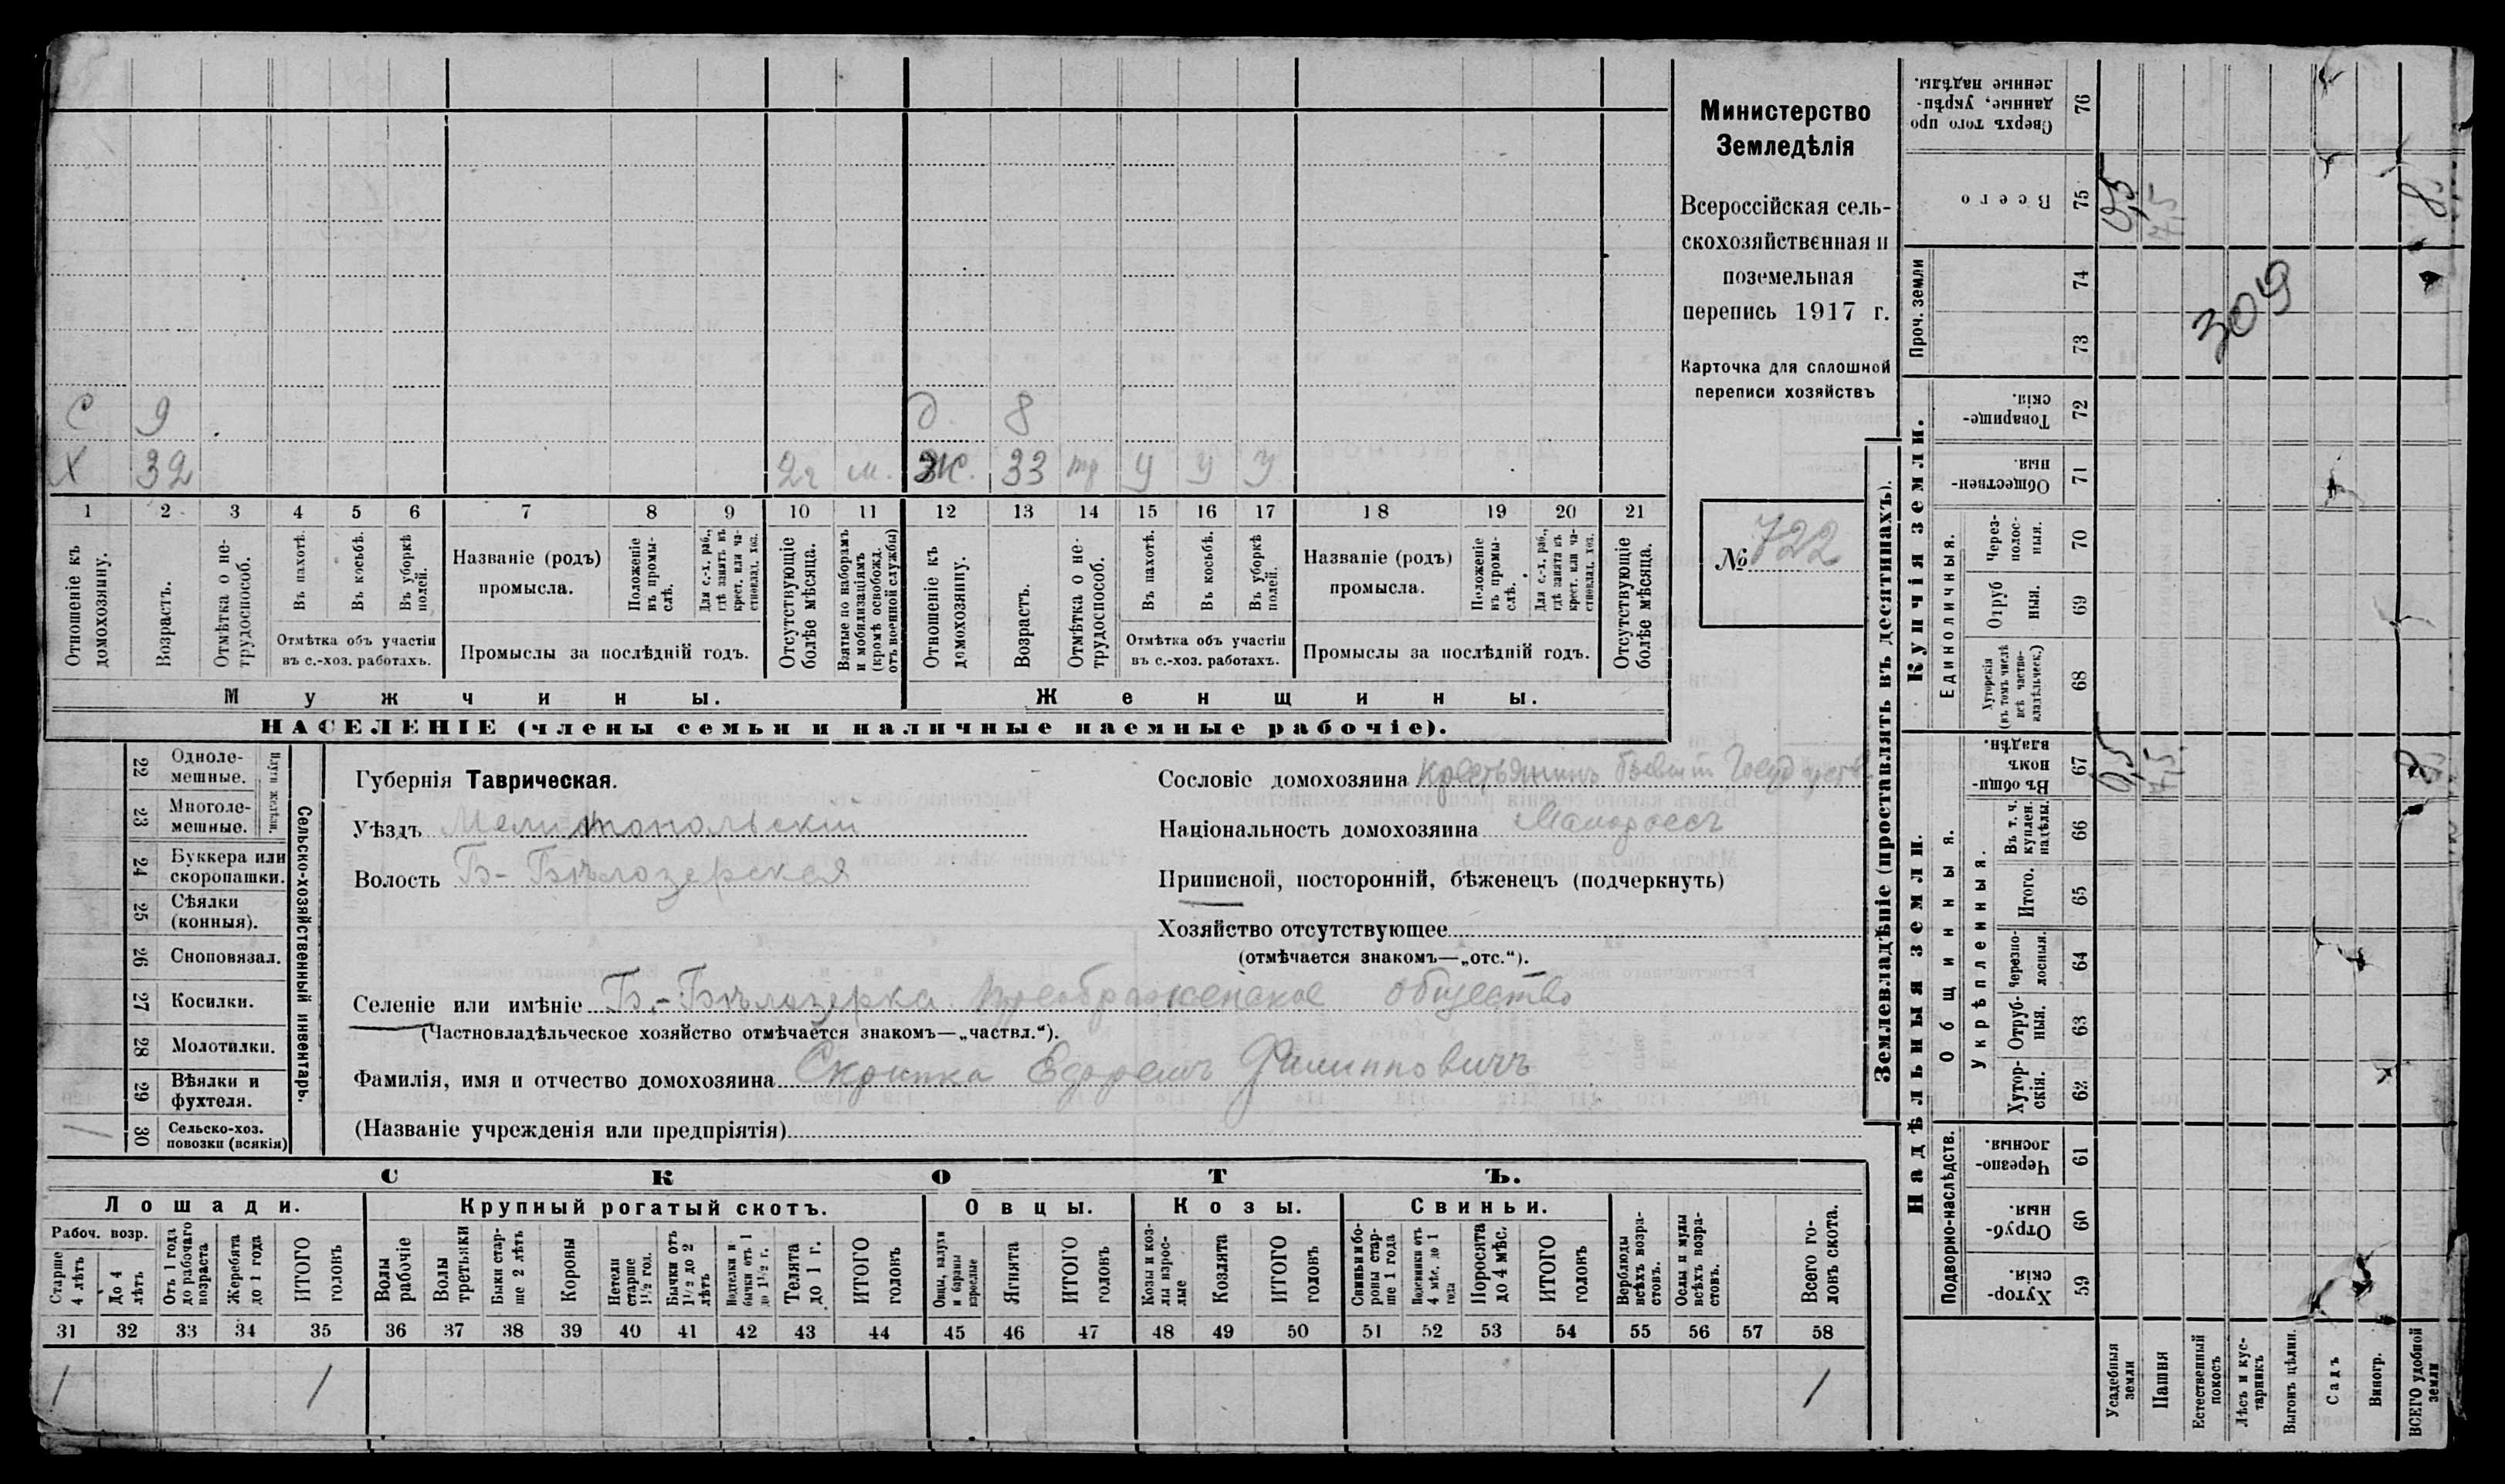 С 9 д. 8
Х 32 2г м. Ж. 33 тр у у у
1 2 3 4 5 6 7 8 9 10 11 12 13 14 15 16 17 18 19 20 21
Отношеніе къ домохозяину.
Возрастъ.
Отмѣтка о нетрудоспособ.
Въ пахотѣ.
Въ косьбѣ.
Въ уборкѣ полей.
Отмѣтка объ участіи
въ с.-хоз. работахъ.
Названіе (родъ)
промысла.
Положеніе въ промыслѣ.
Для с.-х. раб., гдѣ занятъ въ крест. или частновлад. хоз.
Промыслы за послѣдній годъ.
Отсутствующіе болѣе мѣсяца.
Взятые по наборамъ и мобилизаціямъ (кромѣ освобожд. отъ военной службы)
Отношеніе къ домохозяину.
Возрастъ.
Отмѣтка о нетрудоспособ.
Въ пахотѣ.
Въ косьбѣ.
Въ уборкѣ полей.
Отмѣтка объ участіи
въ с.-хоз. работахъ.
Названіе (родъ)
промысла.
Положеніе въ промыслѣ.
Для с.-х. раб., гдѣ занята въ крест. или частновлад. хоз.
Промыслы за послѣдній годъ.
Отсутствующіе болѣе мѣсяца.
Мужчины. Женщины.
НАСЕЛЕНІЕ (члены семьи и наличные наемные рабочіе).
Министерство
Земледѣлія
Всероссійская сель-
скохозяйственная и
поземельная
перепись 1917 г.
Карточка для сплошной
переписи хозяйствъ
№ 722
Сельско-хозяйственный инвентарь.
Плуги желѣзн.
22 Одноле-
мешные.
23 Многоле-
мешные.
24 Буккера или
скоропашки.
25 Сѣялки
(конныя).
26 Сноповязал.
27 Косилки.
28 Молотилки.
29 Вѣялки и
фухтеля.
30 Сельско-хоз.
повозки (всякія) 1
Губернія Таврическая.
Уѣздъ Мелитопольскій
Волость Б-Бѣлозерская
Сословіе домохозяина Крестьянинъ бывшій Госуд
Національность домохозяина Малороссъ
Приписной, посторонній, бѣженецъ (подчеркнуть)
Хозяйство отсутствующее
(отмѣчается знакомъ—„отс.“).
Селеніе или имѣніе Б.-Бѣлозерка Преображенское общество
(Частновладѣльческое хозяйство отмѣчается знакомъ—„частвл.“).
Фамилія, имя и отчество домохозяина Скрипка Ефремъ Филипповичъ
(Названіе учрежденія или предпріятія)
СКОТЪ.
Лошади. Крупный рогатый скотъ. Овцы. Козы. Свиньи.
Рабоч. возр.
Старше 4 лѣтъ
До 4 лѣтъ
Отъ 1 года до рабочаго возраста
Жеребята до 1 года
ИТОГО головъ
Волы рабочіе
Волы третьяки
Быки старше 2 лѣтъ
Коровы
Нетели старше 1½ год.
Бычки отъ 1½ до 2 лѣтъ
Подтелки и бычки отъ 1 до 1½ г.
Телята до 1 г.
ИТОГО головъ
Овцы, валухи и бараны взрослые
Ягнята
ИТОГО головъ
Козы и козлы взрослые
Козлята
ИТОГО головъ
Свиньи и боровы старше 1 года
Подсвинки отъ 4 мѣс. до 1 года
Поросята до 4 мѣс.
ИТОГО головъ
Верблюды всѣхъ возрастовъ.
Ослы и мулы всѣхъ возрастовъ.
Всего головъ скота.
31 32 33 34 35 36 37 38 39 40 41 42 43 44 45 46 47 48 49 50 51 52 53 54 55 56 57 58
1 1 1
Землевладѣніе (проставлять въ десятинахъ).
Купчія земли.
Надѣльныя земли.
Сверхъ того проданные, укрѣпленные надѣлы. 76
Всего 75 0,5 7,5 8
Проч. земли 74 73
309
Товарищескія. 72
Общественныя. 71
Единоличныя.
Черезполосныя. 70
Отрубныя. 69
Хуторскія (въ томъ числѣ всѣ частновладѣльческ.) 68
Общинныя.
Въ общинномъ владѣн. 67 0,5 7,5 8
Укрѣпленныя.
Въ т. ч. куплен. надѣлы. 66
Итого. 65
Черезполосныя. 64
Отрубныя. 63
Хуторскія. 62
Подворно-наслѣдств.
Черезполосныя. 61
Отрубныя. 60
Хуторскія. 59
Усадебныя земли
Пашня
Естественный покосъ
Лѣсъ и кустарникъ
Выгонъ цѣлин.
Садъ
Виногр.
ВСЕГО удобной земли